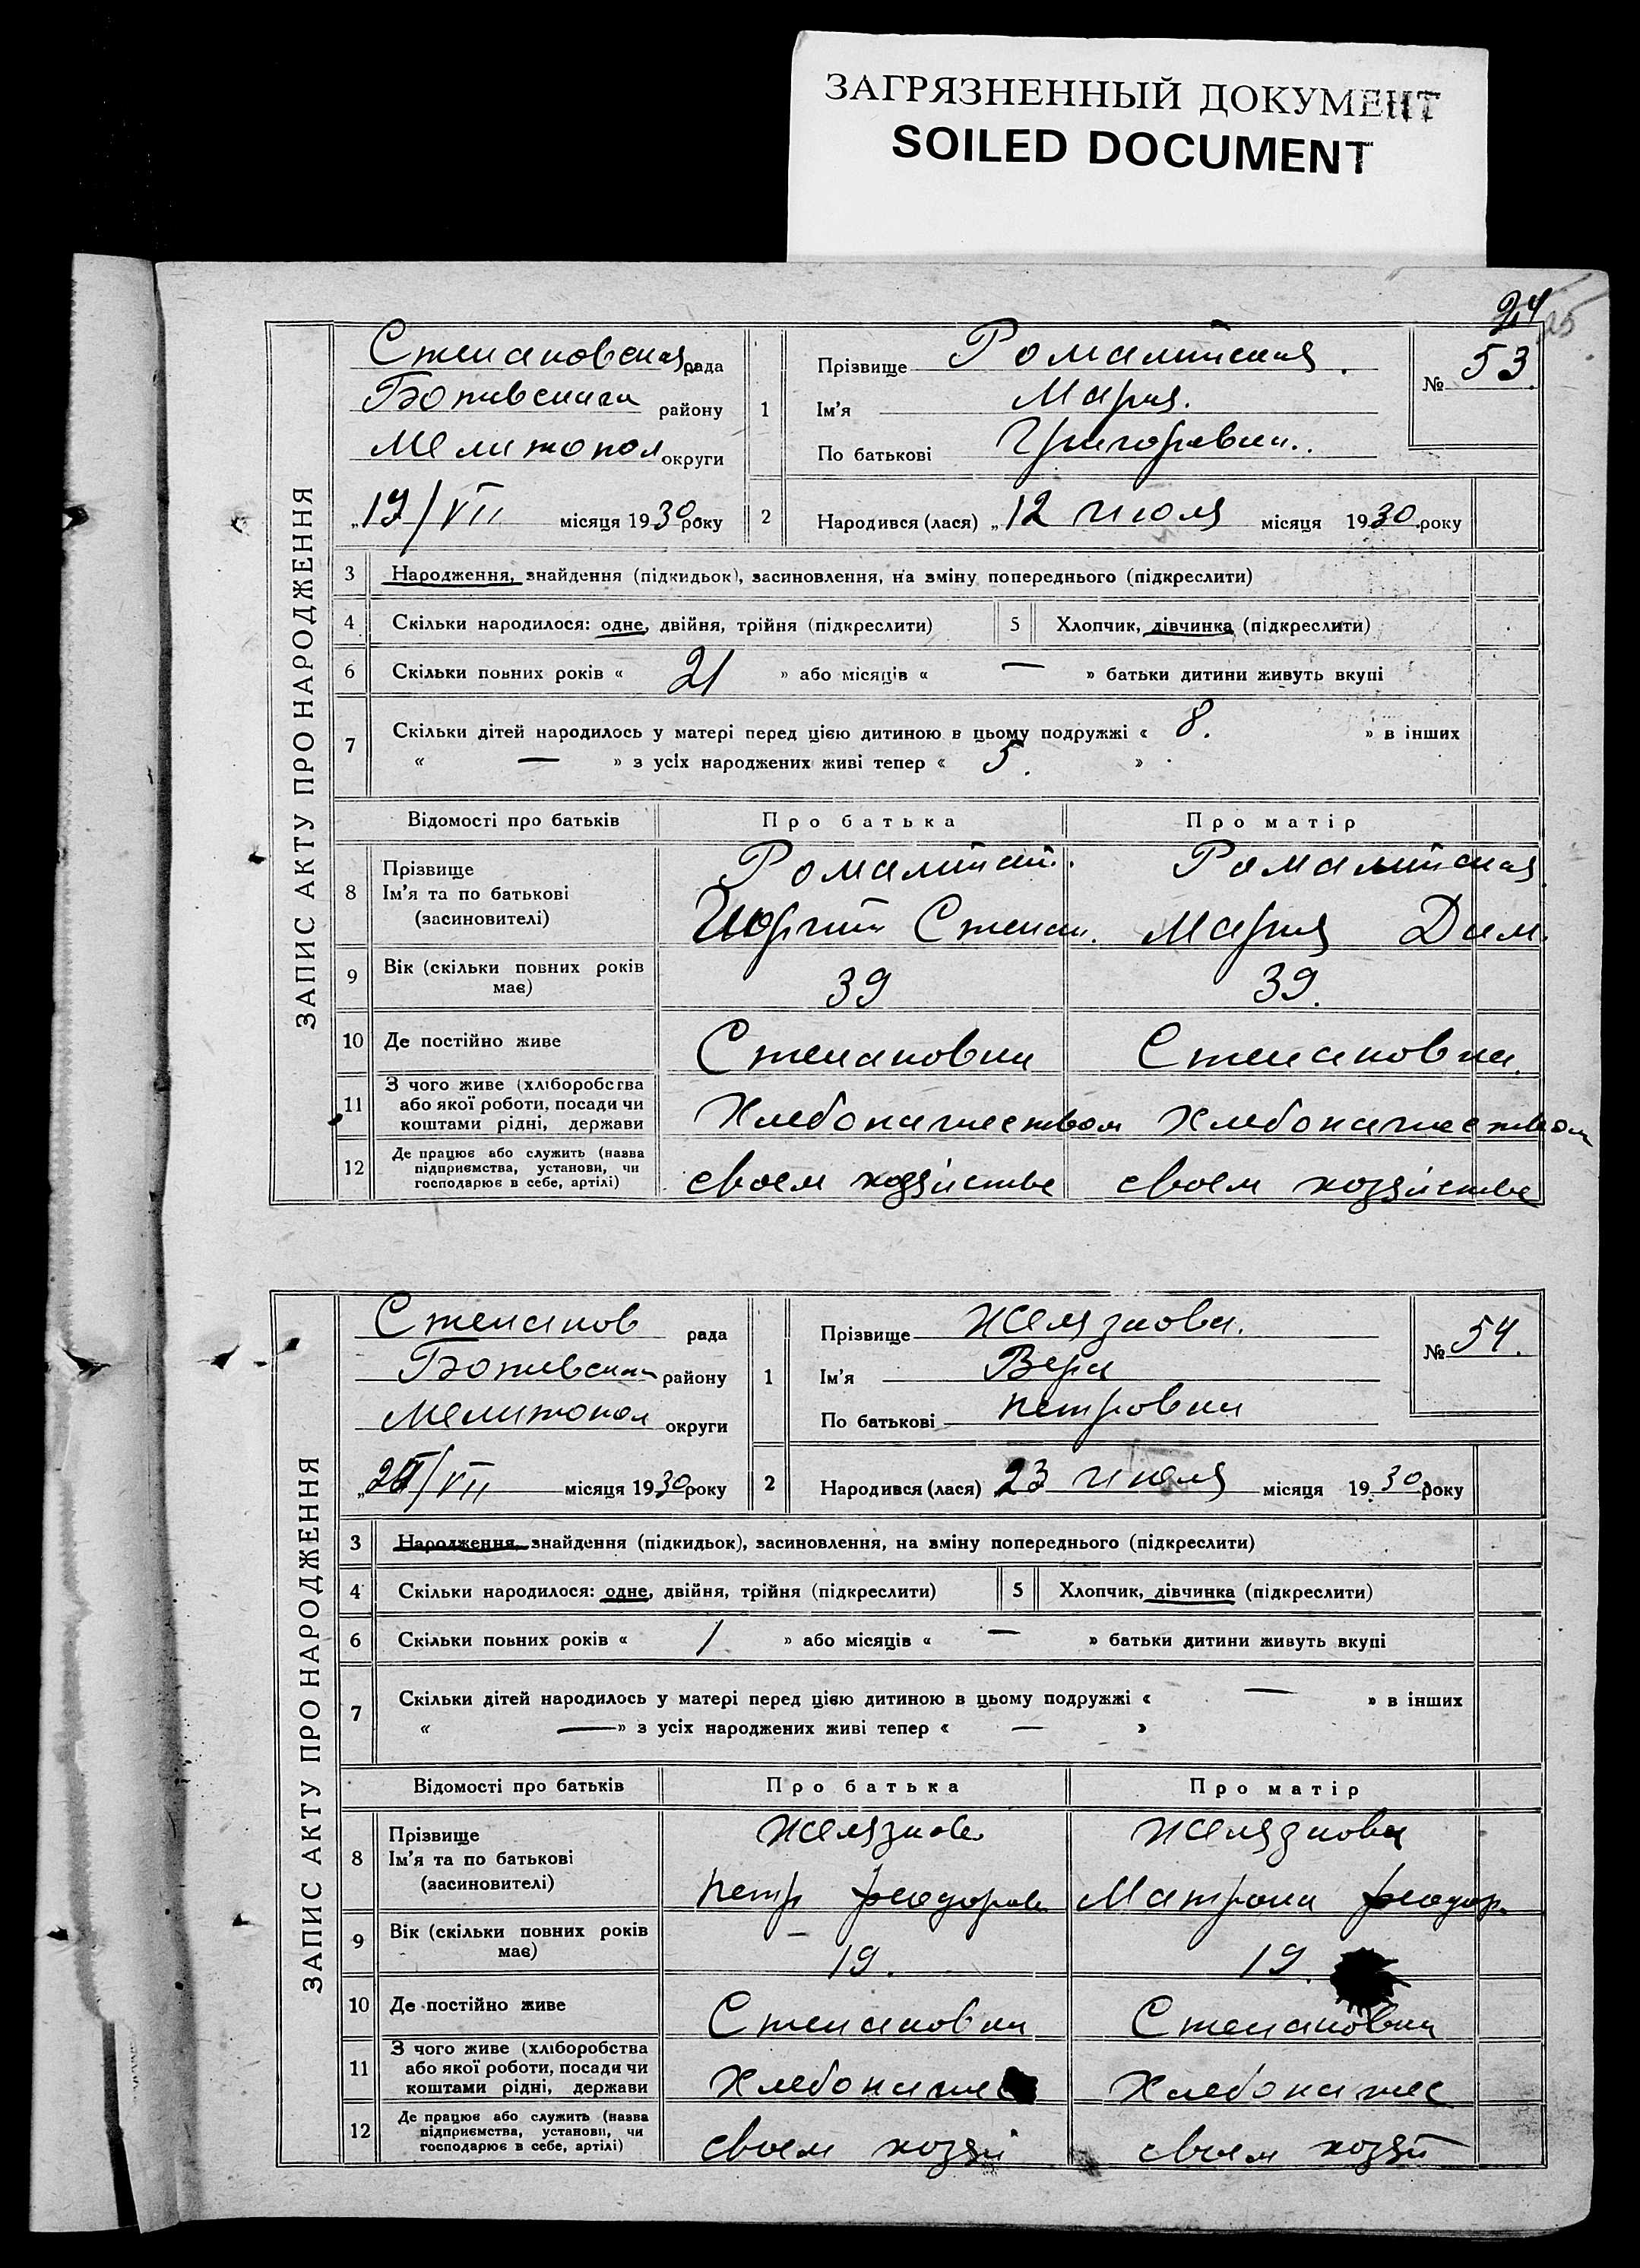 ЗАГРЯЗНЕННЫЙ ДОКУМЕНТ
SOILED DOCUMENT
24
25
ЗАПИС АКТУ ПРО НАРОДЖЕННЯ
Степановская рада
Ботивскага району
Мелитопол округи
„17/VII місяця 1930 року
1
Прізвище Романтская.
Ім'я Мария.
По батькові Григоревна.
№ 53
2 Народився (лася) „12 июля місяця 1930 року
3 Народження, знайдення (підкидьок), засиновлення, на зміну попереднього (підкреслити)
4 Скільки народилося: одне, двійня, трійня (підкреслити) 5 Хлопчик, дівчинка (підкреслити)
6 Скільки повних років « 21 » або місяців « — » батьки дитини живуть вкупі
7 Скільки дітей народилось у матері перед цією дитиною в цьому подружжі « 8. » в інших
« — » з усіх народжених живі тепер « 5. »
Відомості про батьків Про батька Про матір
8 Прізвище
Ім'я та по батькові
(засиновителі)
Степан. Мария Дим.
9 Вік (скільки повних років має) 39 39.
10 Де постійно живе Степановка Степановка.
11 З чого живе (хліборобства
або якої роботи, посади чи
коштами рідні, держави
Хлебопашеством Хлебопашеством
12 Де працює або служить (назва
підприємства, установи, чи
господарює в себе, артілі)
своем хозяйстве своем хозяйстве
ЗАПИС АКТУ ПРО НАРОДЖЕННЯ
Степанов рада
Ботивскага району
Мелитопол округи
„ /VII місяця 1930 року
1
Прізвище Желязкова.
Ім'я Вера
По батькові петровна
№ 54.
2 Народився (лася) 23 июля місяця 1930 року
3 Народження, знайдення (підкидьок), засиновлення, на зміну попереднього (підкреслити)
4 Скільки народилося: одне, двійня, трійня (підкреслити) 5 Хлопчик, дівчинка (підкреслити)
6 Скільки повних років « 1 » або місяців « — » батьки дитини живуть вкупі
7 Скільки дітей народилось у матері перед цією дитиною в цьому подружжі « — » в інших
« — » з усіх народжених живі тепер « — »
Відомості про батьків Про батька Про матір
8 Прізвище
Ім'я та по батькові
(засиновителі)
Желязков Желязкова
петр феодоров Матрона феодор.
9 Вік (скільки повних років має) 19. 19.
10 Де постійно живе Степановка Степановка
11 З чого живе (хліборобства
або якої роботи, посади чи
коштами рідні, держави
Хлебопашес Хлебопашес
12 Де працює або служить (назва
підприємства, установи, чи
господарює в себе, артілі)
своем хозяй своем хозяй